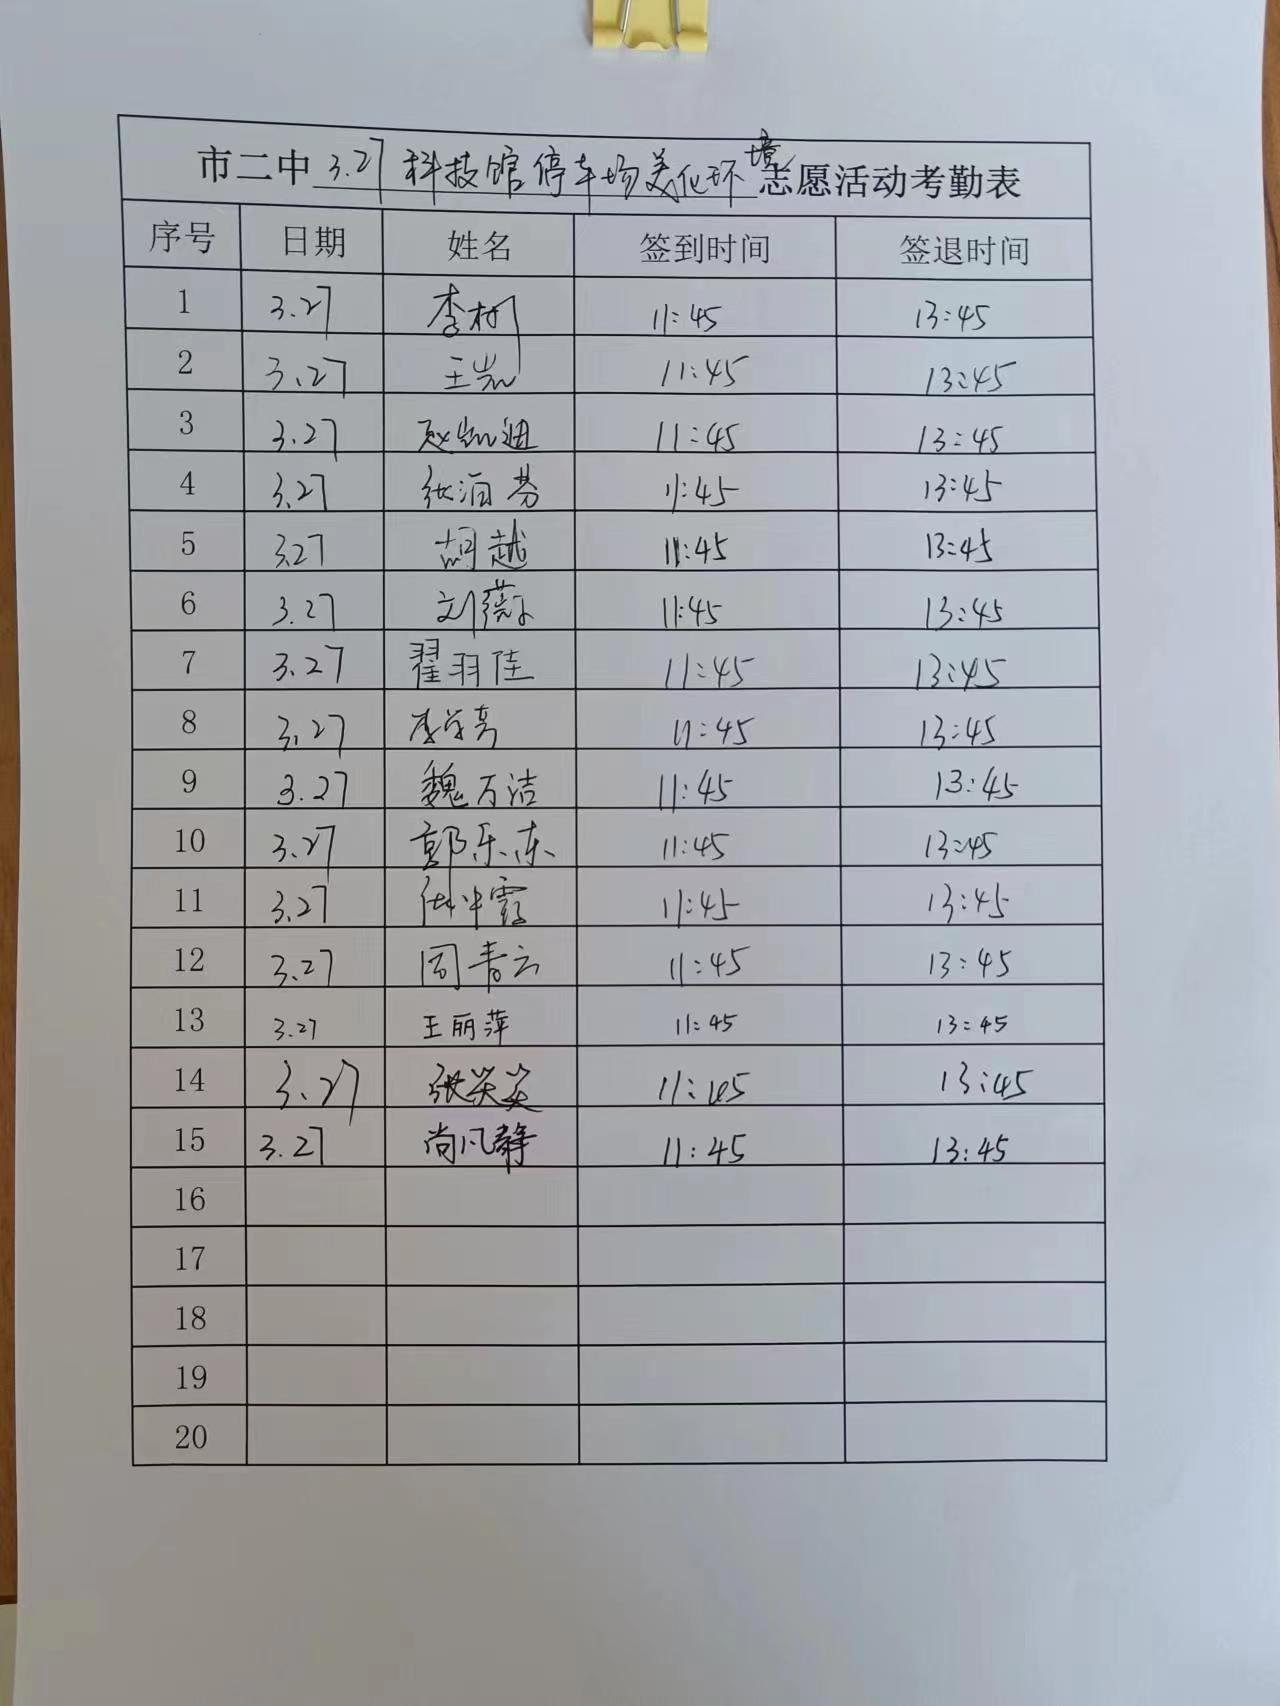 市二中3.27科技馆停车场美化环境志愿活动考勤表
序号 日期 姓名 签到时间 签退时间
1 3.27 李树 11:45 13:45
2 3.27 王岚 11:45 13:45
3 3.27 11:45 13:45
4 3.27 11:45 13:45
5 3.27 胡越 11:45 13:45
6 3.27 刘薇 11:45 13:45
7 3.27 翟羽佳 11:45 13:45
8 3.27 11:45 13:45
9 3.27 魏万洁 11:45 13:45
10 3.27 郭乐东 11:45 13:45
11 3.27 11:45 13:45
12 3.27 周青云 11:45 13:45
13 3.27 王丽萍 11:45 13:45
14 3.27 张笑笑 11:45 13:45
15 3.27 尚凡静 11:45 13:45
16
17
18
19
20